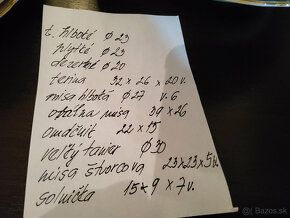 t. hlboké ø 23
plytké ø 23
dezertné ø 20
terina 32 x 26 x 20 v.
misa hlboká ø 27 v. 6
oválna misa 39 x 26
omáčnik 22 x 15
veľký tanier ø 30
misa štvorcová 23x23x5 v.
soľnička 15 x 9 x 7 v.
sBazar.sk